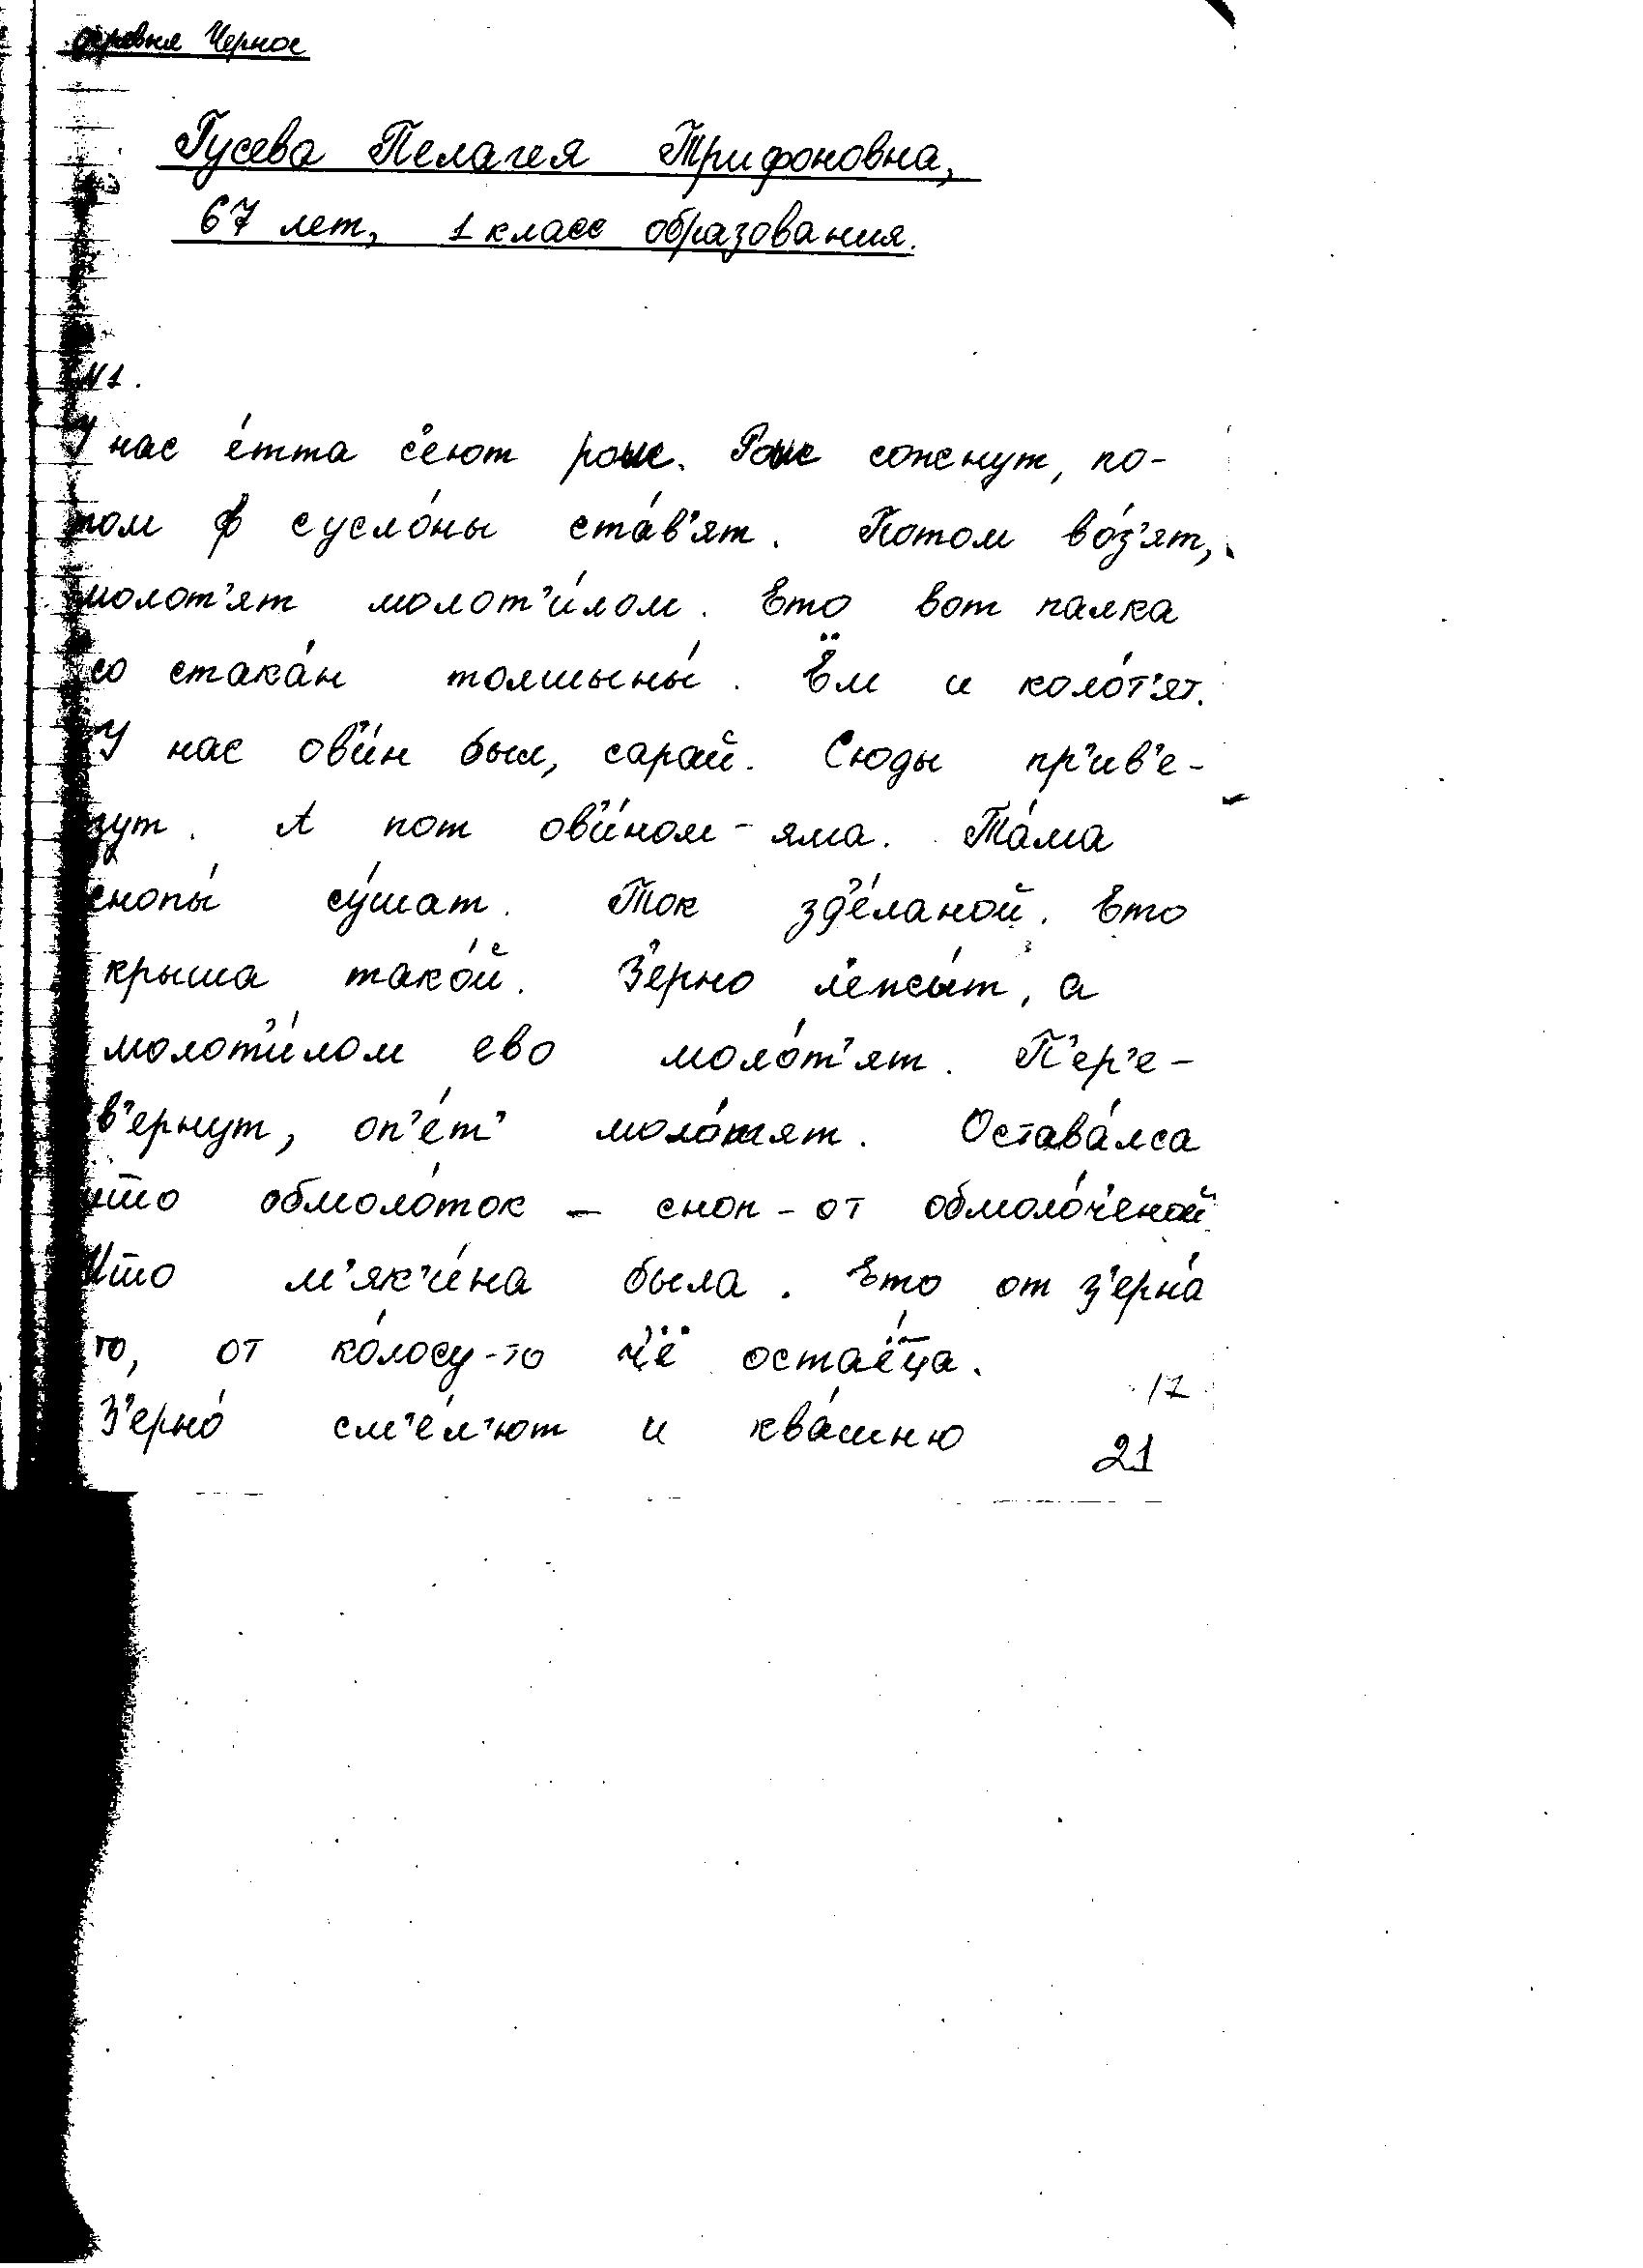 деревня Черное
Гусева Пелагея Трифоновна,
67 лет, 1 класс образования.
N1.
У нас е́тта с'еют рош. Рош сожнут, по-
том ф сусло́ны ста́в'ят. Потом во́з'ят,
молот'ят молот'и́лом. Ето вот палка
со стака́н толшыны́. Ём и коло́т'ят.
У нас ов'и́н был, сарай. Сюды пр'ив'е-
зут. А пот ов'и́ном - яма. Та́ма
снопы́ су́шат. Ток зд'е́ланой. Ето
крыша тако́й. З'ерно л'ежы́т, а
молот'и́лом ево моло́т'ят. П'ер'е-
в'ернут, оп'е́т' моло́тят. Остава́лса
што обмоло́ток - сноп-от обмоло́ченой
Што м'як'и́на была. Ето от з'ерна́
то, от ко́лосу-то чё оста́ёца.
З'ерно́ см'е́л'ют и ква́шню
17
21